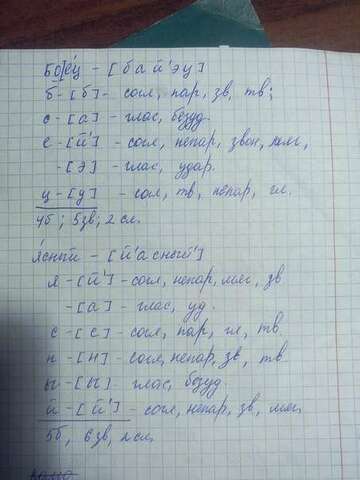 Боец - [бай'эц]
б - [б] - согл, пар, зв, тв;
о - [а] - глас, безуд.
е - [й'] - согл, непар, звон, мяг,
- [э] - глас, удар.
ц - [ц] - согл, тв, непар, гл.
4б; 5зв; 2 сл.
Ясный - [й'асный']
я - [й'] - согл, непар, мяг, зв
- [а] - глас, уд.
с - [с] - согл, пар, гл, тв.
н - [н] - согл, непар, зв, тв
ы - [ы] - глас, безуд.
й - [й'] - согл, непар, зв, мяг.
5б, 6зв, 2 сл.